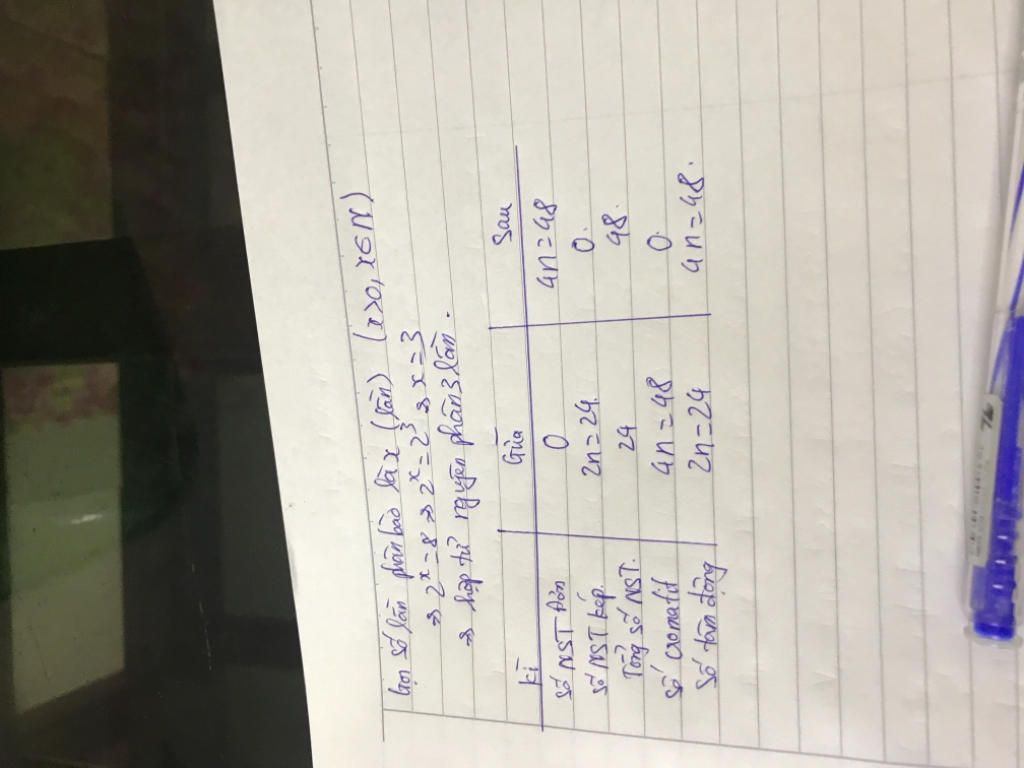 Gọi số lần phân bào là x (lần) (x>0, x∈N)
⇒ 2^x = 8 ⇒ 2^x = 2^3 ⇒ x = 3
⇒ hợp tử nguyên phân 3 lần.
kì Giữa Sau
Số NST đơn 0 4n = 48
Số NST kép 2n = 24. 0.
Tổng số NST. 24 48.
Số cromatit 4n = 48 0.
Số tâm động 2n = 24 4n = 48.